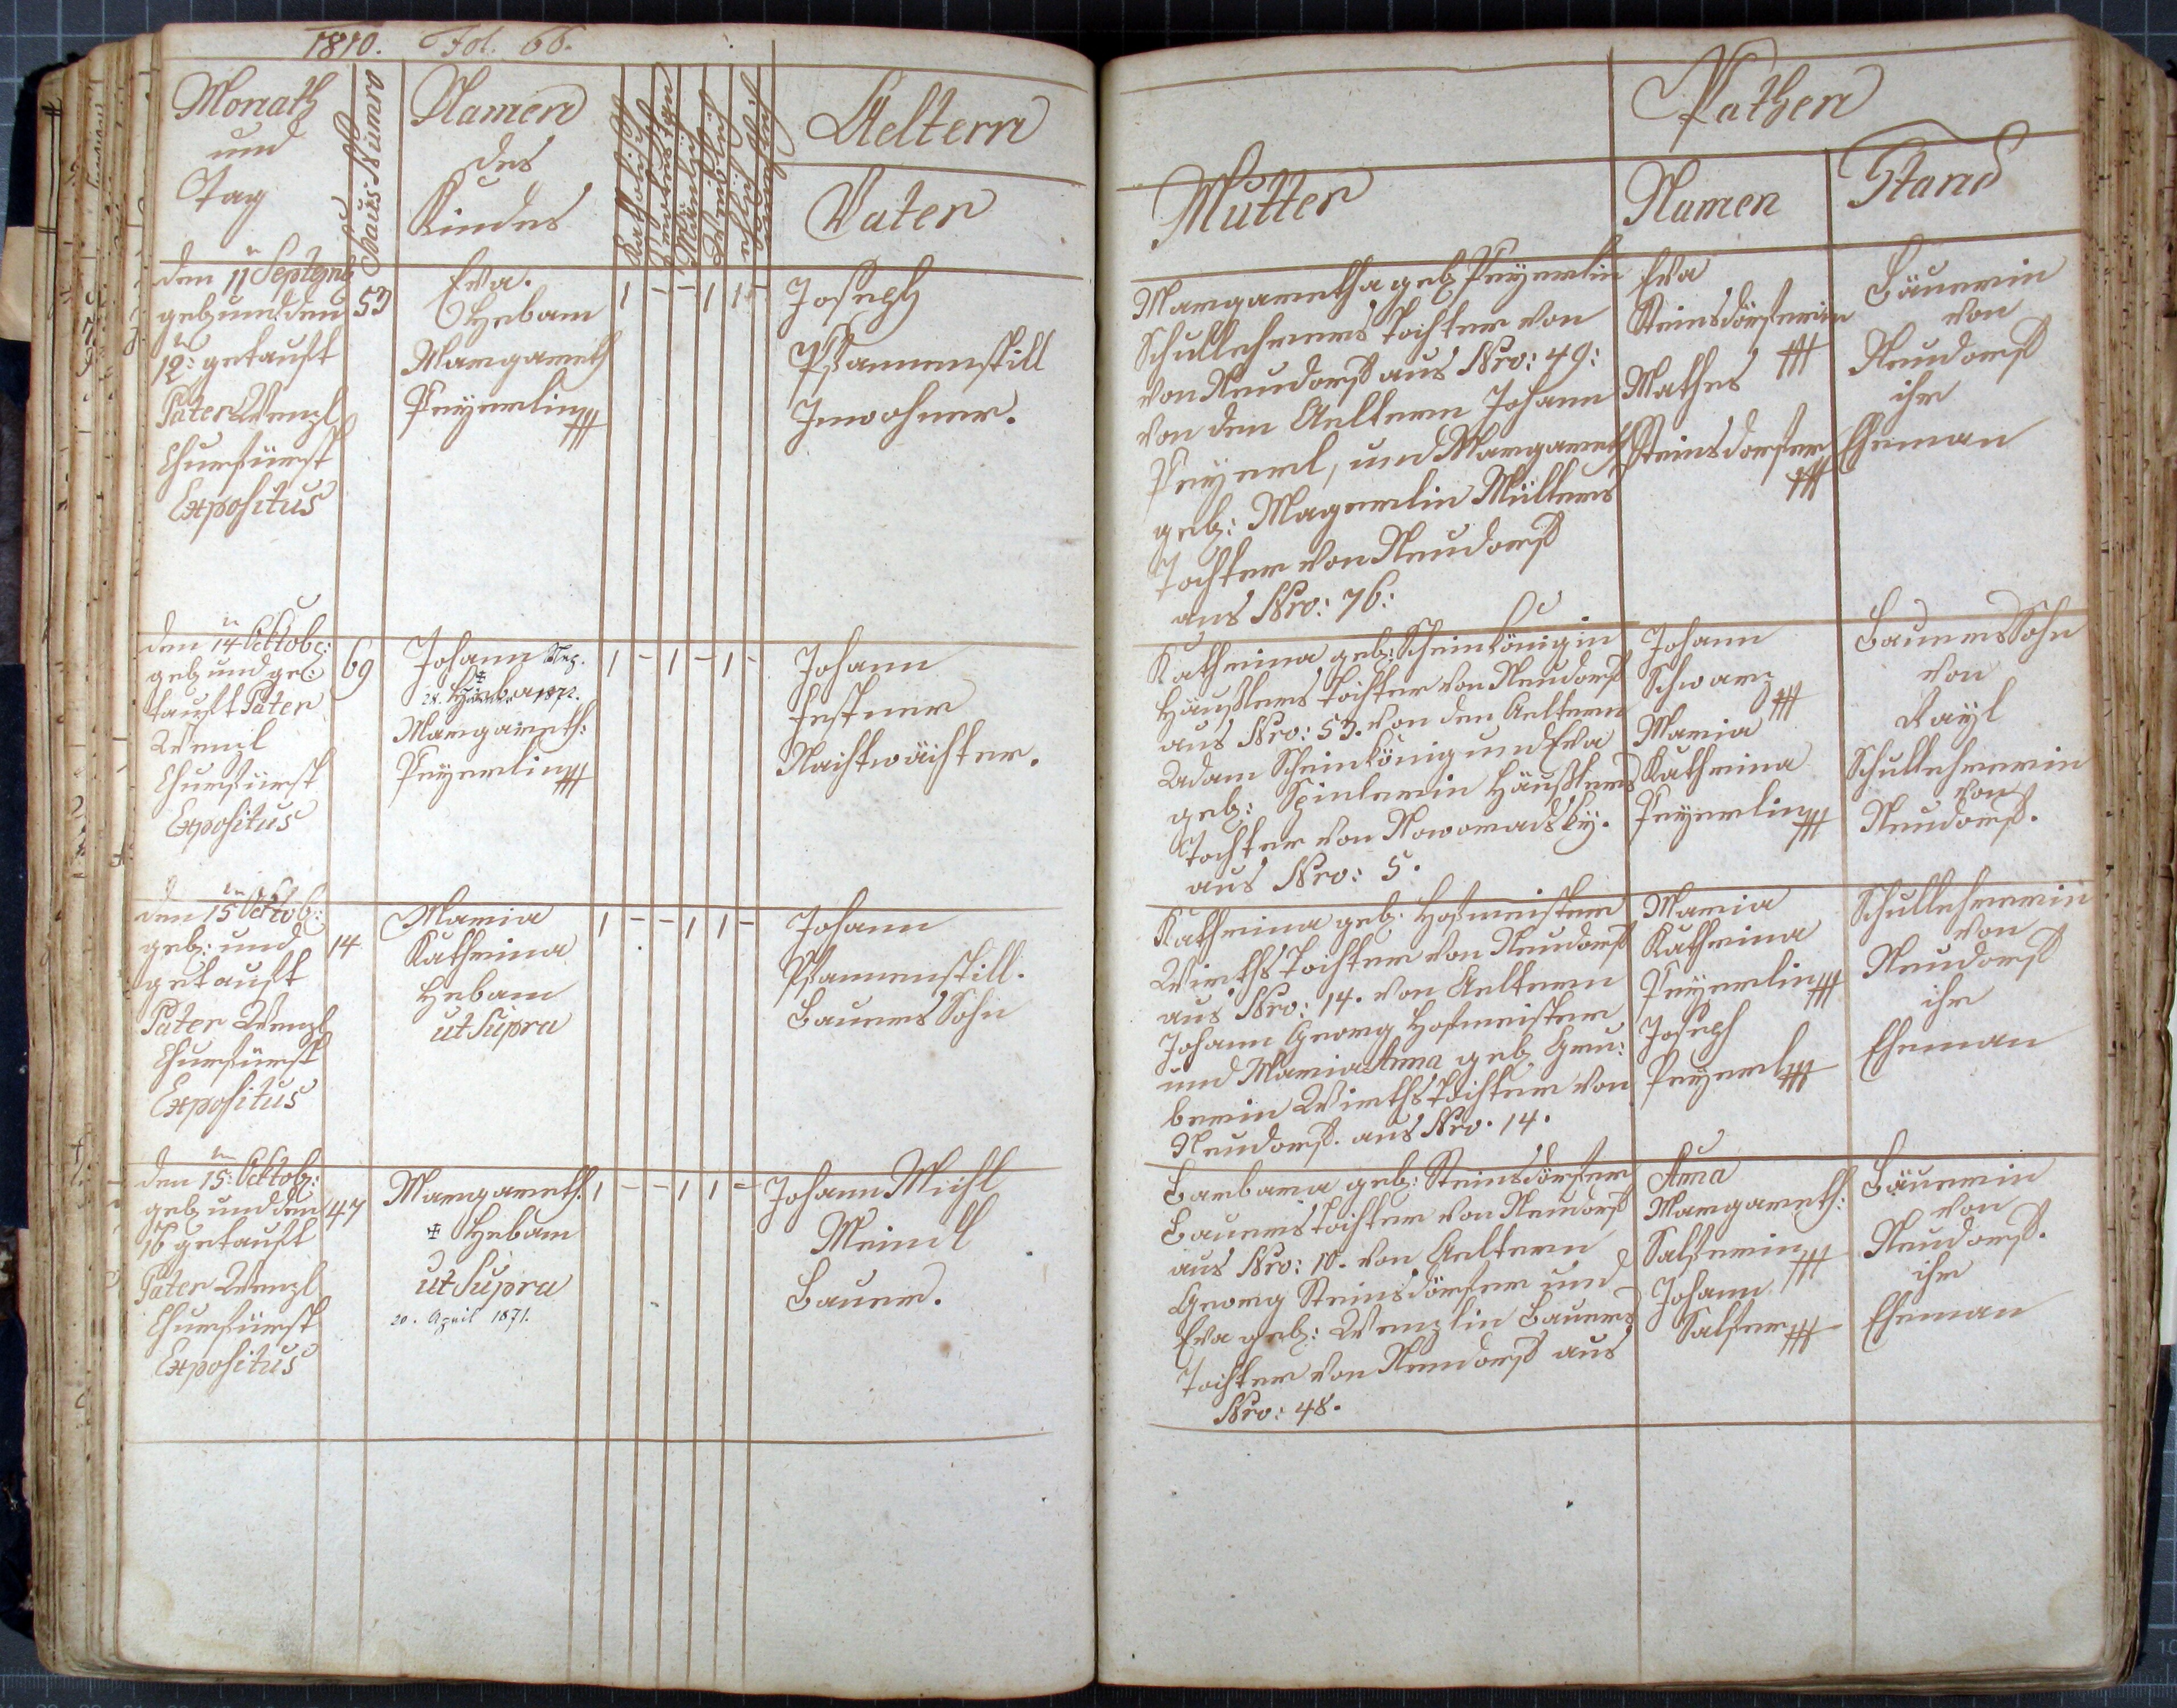 1810. Fol. 66.
Monath
und
Tag
Haus Numro
Namen
des
Kindes
Katholisch
Protestan
Mänlich
Weiblich
ehelich
unehelich
Aeltern
Vater
Mutter
Pathen
Namen
Stand
den 11n Septemb
geb und den
12n: getauft
Pater Wenzl
Churfürst
Expositus
53
Eva.
Hebam
Margareth
Peyerlin
1 - - 1 1 -
Joseph
Pfannenstill
Inwohner.
Margaretha geb Peyerlin
Schullehrers Tochter von
von Neudorf aus Nro: 49:
von den Aeltern Johann
Peyerl, und Margareth
geb: Magerlin Müllers
Tochter von Neudorf
aus Nro: 76:
Eva
Steinsdörferin
Mathes
Steinsdorfer
Bäuerin
von
Neudorf
ihr
Eheman
den 14n Octob:
geb und ge:
tauft Pater
Wenzl
Churfürst
Expositus
69
Johann Nep.
Hebam
1872.
Margareth:
Peyerlin
1 - 1 - 1 -
Johann
Festner
Nachtwächter.
Katherina geb: Scheinkönigin
Häuslers Tochter von Neudorf
aus Nro: 53. von den Aeltern
Adam Scheinkönig und Eva
geb: Spinlerin Häuslers
Tochter von Noworadsky.
aus Nro: 5.
Johann
Schwarz
Maria
Katherina
Peyerlin
Bauers Sohn
von
Rayl
Schullehrerin
von
Neudorf.
den 15n Octob:
geb: und
getauft
Pater Wenzl
Churfürst
Expositus
14
Maria
Katherina
Hebam
ut Supra
1 - - 1 1 -
Johann
Pfannenstill.
Bauers Sohn
Katherina geb: Hofmeister
Wirths Tochter von Neudorf
aus Nro: 14. von Aeltern
Johann Georg Hofmeister
und Maria Anna geb Gru:
berin Wirths Tochter von
Neudorf. aus Nro. 14.
Maria
Katherina
Peyerlin
Joseph
Peyerl
Schullehrerin
von
Neudorf
ihr
Eheman
den 15n: Octob:
geb und den
16 getauft
Pater Wenzl
Churfürst
Expositus
47
Margareth.
Hebam
ut Supra
20. April 1871.
1 - - 1 1 -
Johann Michl
Meindl
Bauer.
Barbara geb: Steinsdörfer
Bauers Tochter von Neudorf
aus Nro: 10. von Aeltern
Georg Steinsdörfer und
Eva geb: Wenzlin Bauers
Tochter von Neudorf aus
Nro: 48.
Anna
Margareth:
Salferin
Johann
Salfer
Bäuerin
von
Neudorf.
ihr
Eheman